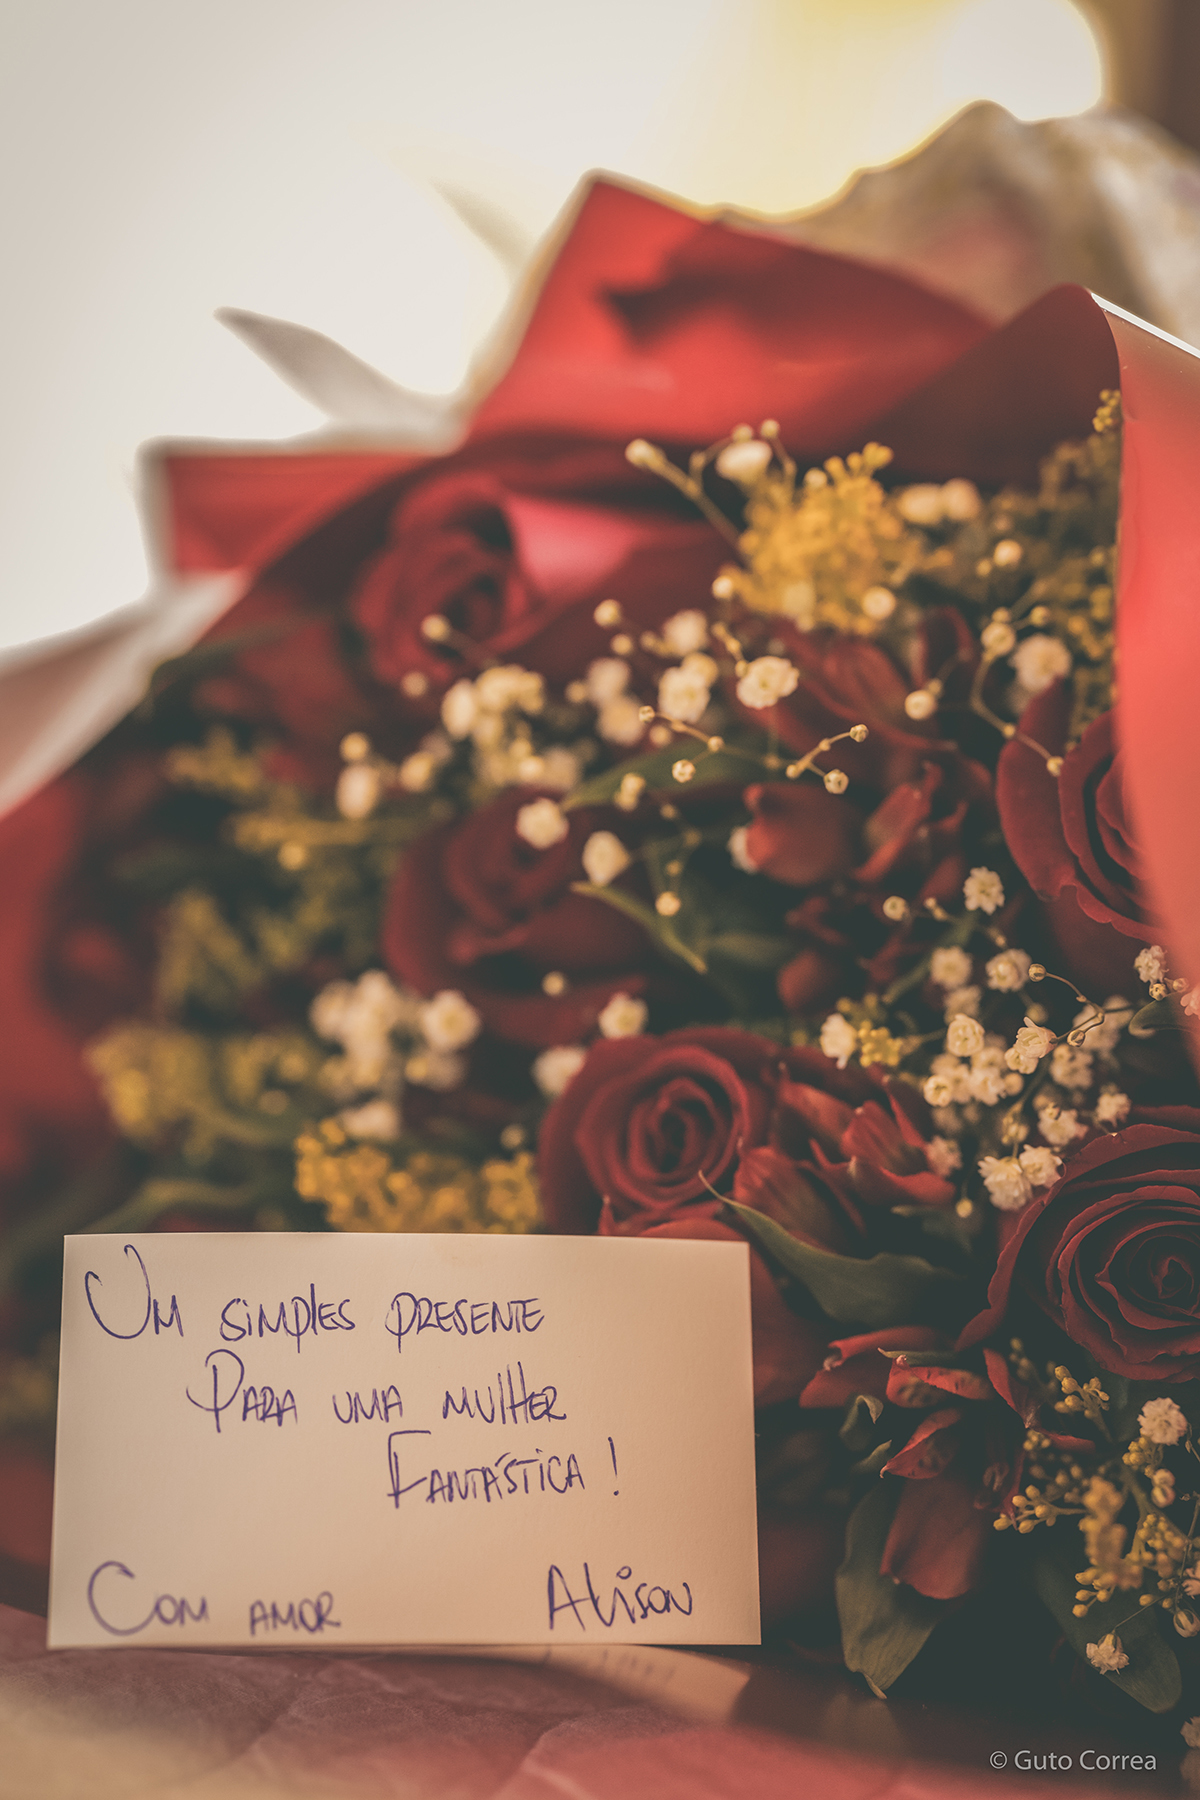 Um simples presente
Para uma mulher
Fantástica!
Com amor Alison
© Guto Correa